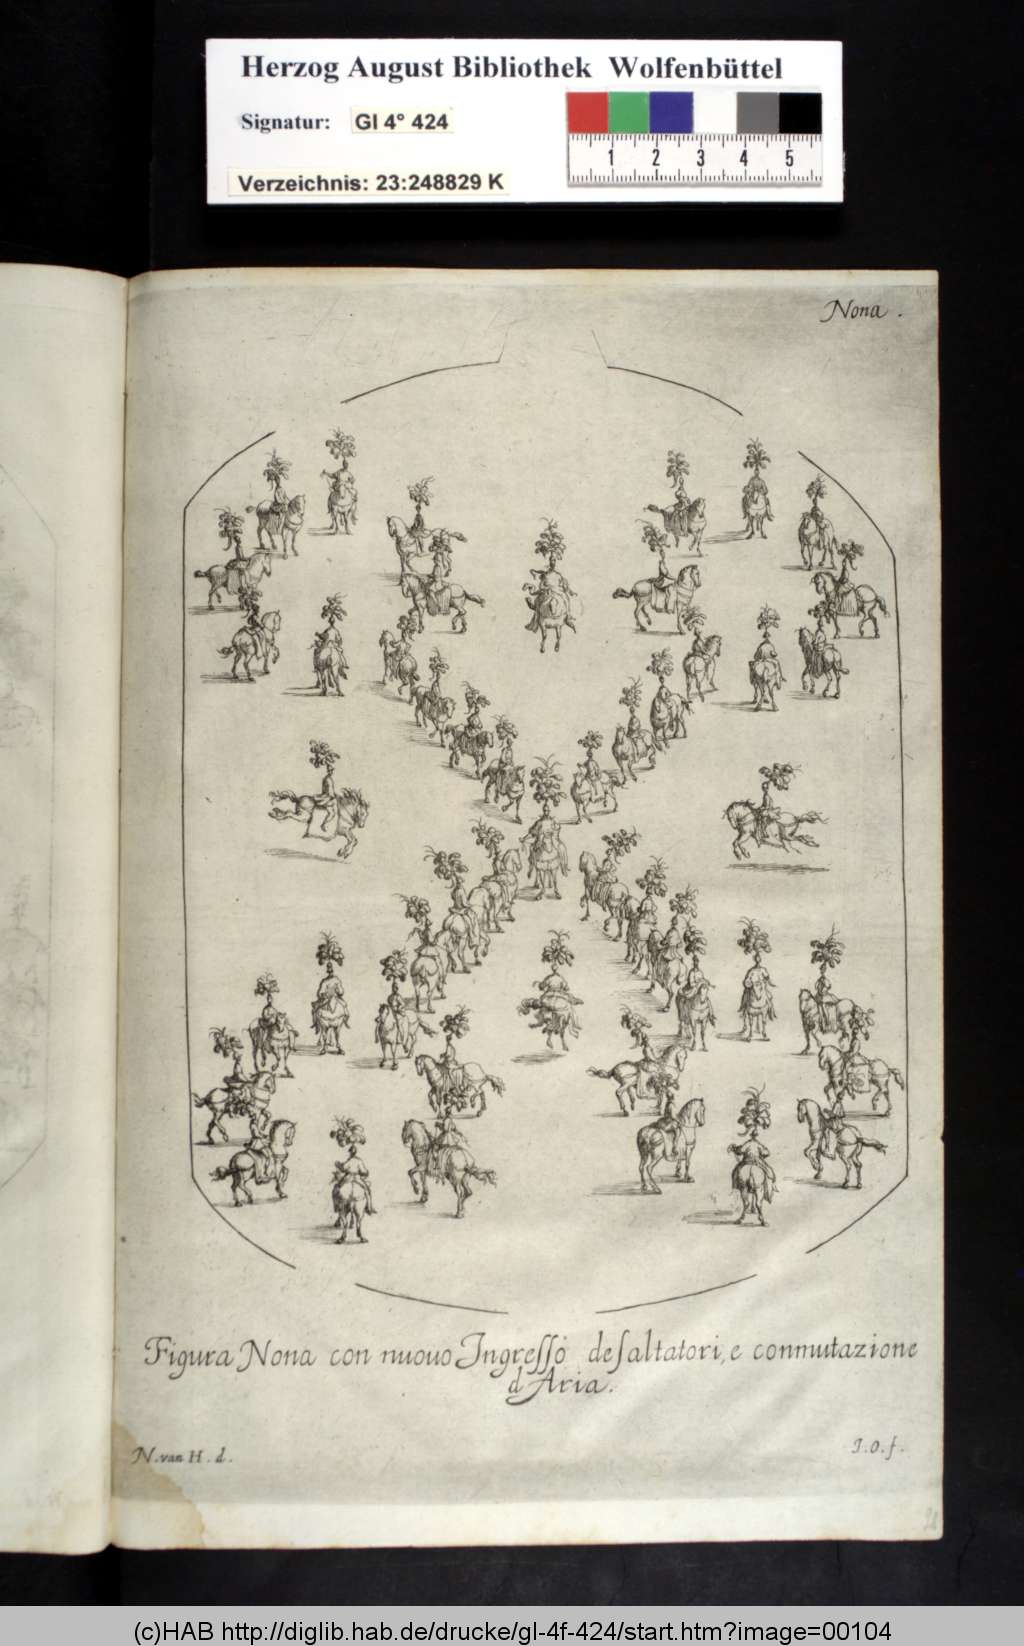 Herzog August Bibliothek Wolfenbüttel
Signatur: Gl 4° 424
Verzeichnis: 23:248829 K
1 2 3 4 5
Nona .
Figura Nona con nuouo Ingreſſo de ſaltatori, e conmutazione
d Aria.
N. van H. d.
I. O. f.
(c)HAB http://diglib.hab.de/drucke/gl-4f-424/start.htm?image=00104